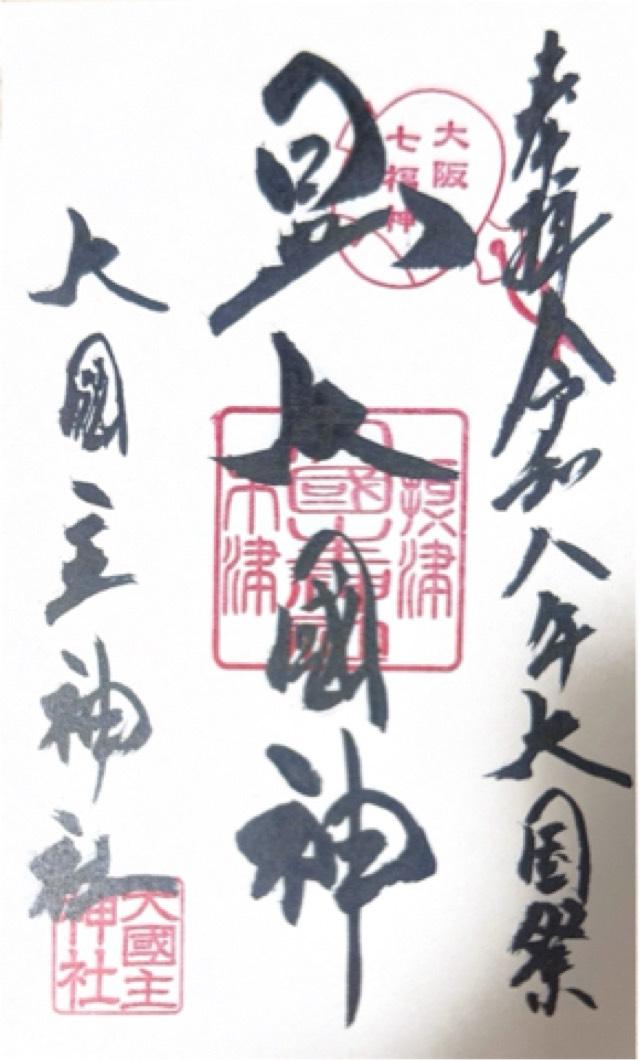 奉拝 令和八年 大国祭
大阪
七福神
大國神
摂津
木津
大國主神社
大國主
神社